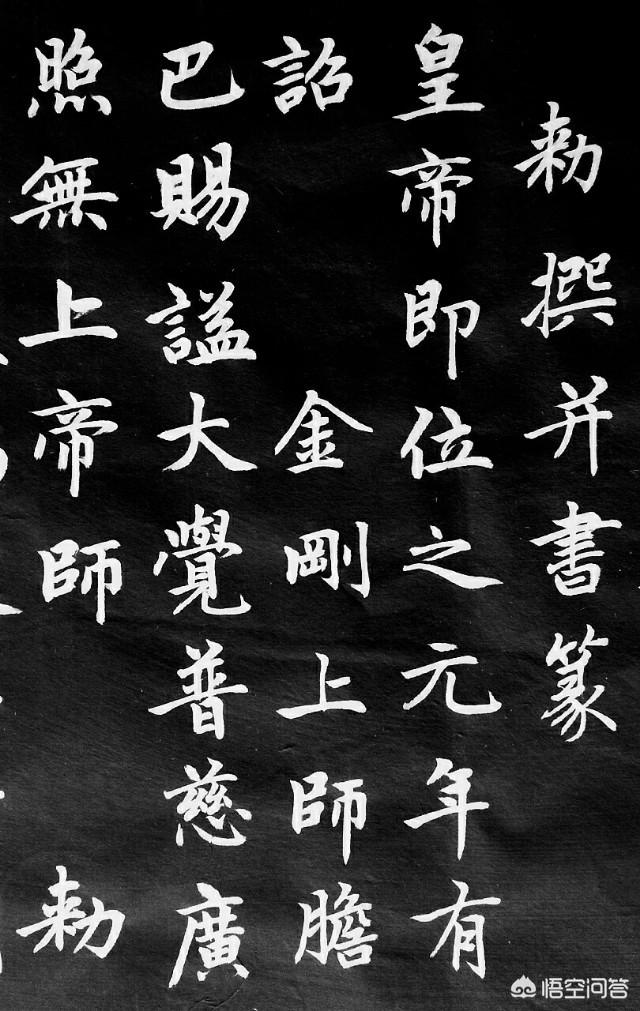 敕撰并書篆
皇帝即位之元年有
詔金剛上師膽
巴賜謚大覺普慈廣
照無上帝師敕
悟空问答